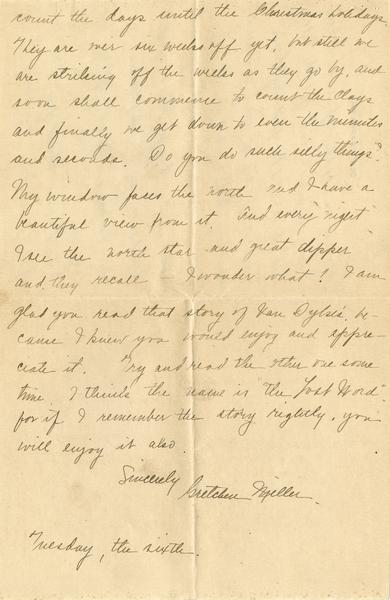 count the days until the Christmas holidays.
They are over six weeks off yet, but still we
are striking off the weeks as they go by, and
soon shall commence to count the days
and finally we get down to even the minutes
and seconds. Do you do such silly things?
My window faces the north and I have a
beautiful view from it. And every night
I see the north star and great dipper
and they recall - I wonder what! I am
glad you read that story of Van Dyke's, be-
cause I knew you would enjoy and appre-
ciate it. Try and read the other one some
time. I think the name is "The Lost Word"
for if I remember the story rightly, you
will enjoy it also.
Sincerely
Gretchen Miller.
Tuesday, the sixth.